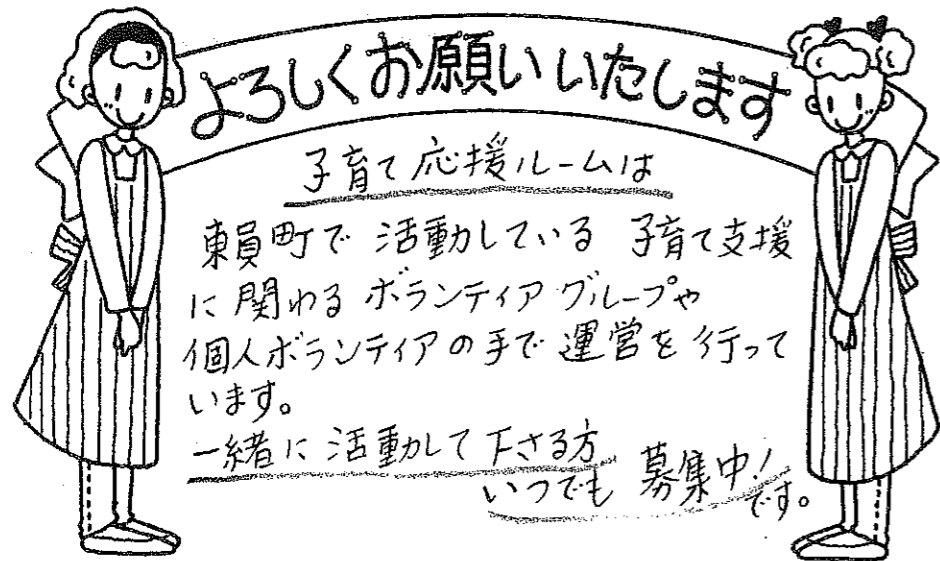 よろしくお願いいたします
子育て応援ルームは
東員町で 活動している 子育て支援
に関わる ボランティアグループや
個人ボランティアの手で 運営を 行って
います。
一緒に 活動して 下さる方
いつでも 募集中!
です。